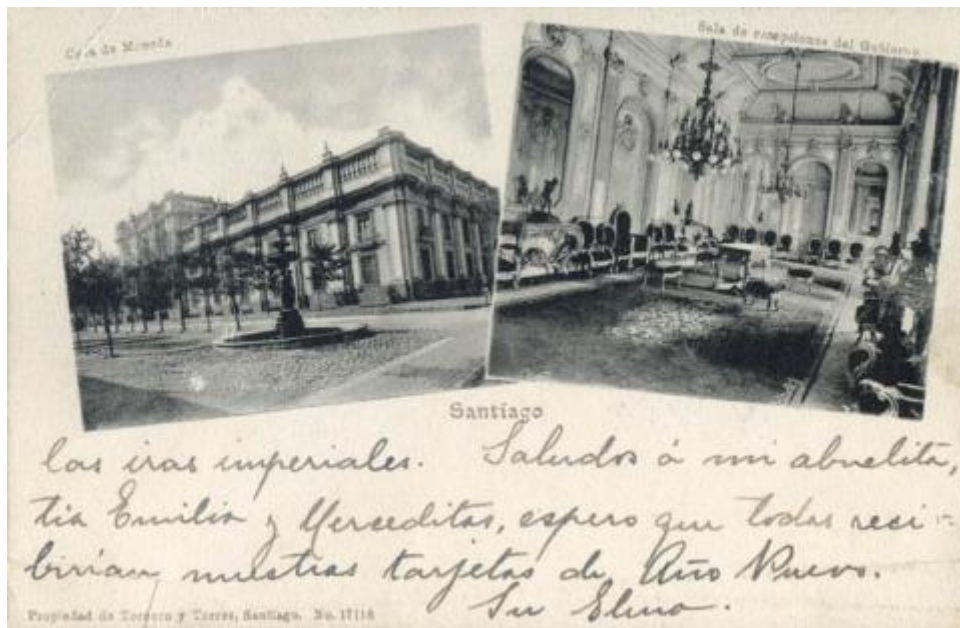 Casa de Moneda
Sala de recepciones del Gobierno
Santiago
las iras imperiales. Saludos á mi abuelita,
tia Emilia y Merceditas, espero que todas reci-
birian nuestras tarjetas de Año Nuevo.
Su
Propiedad de Tornero y Torres, Santiago. No. 17118